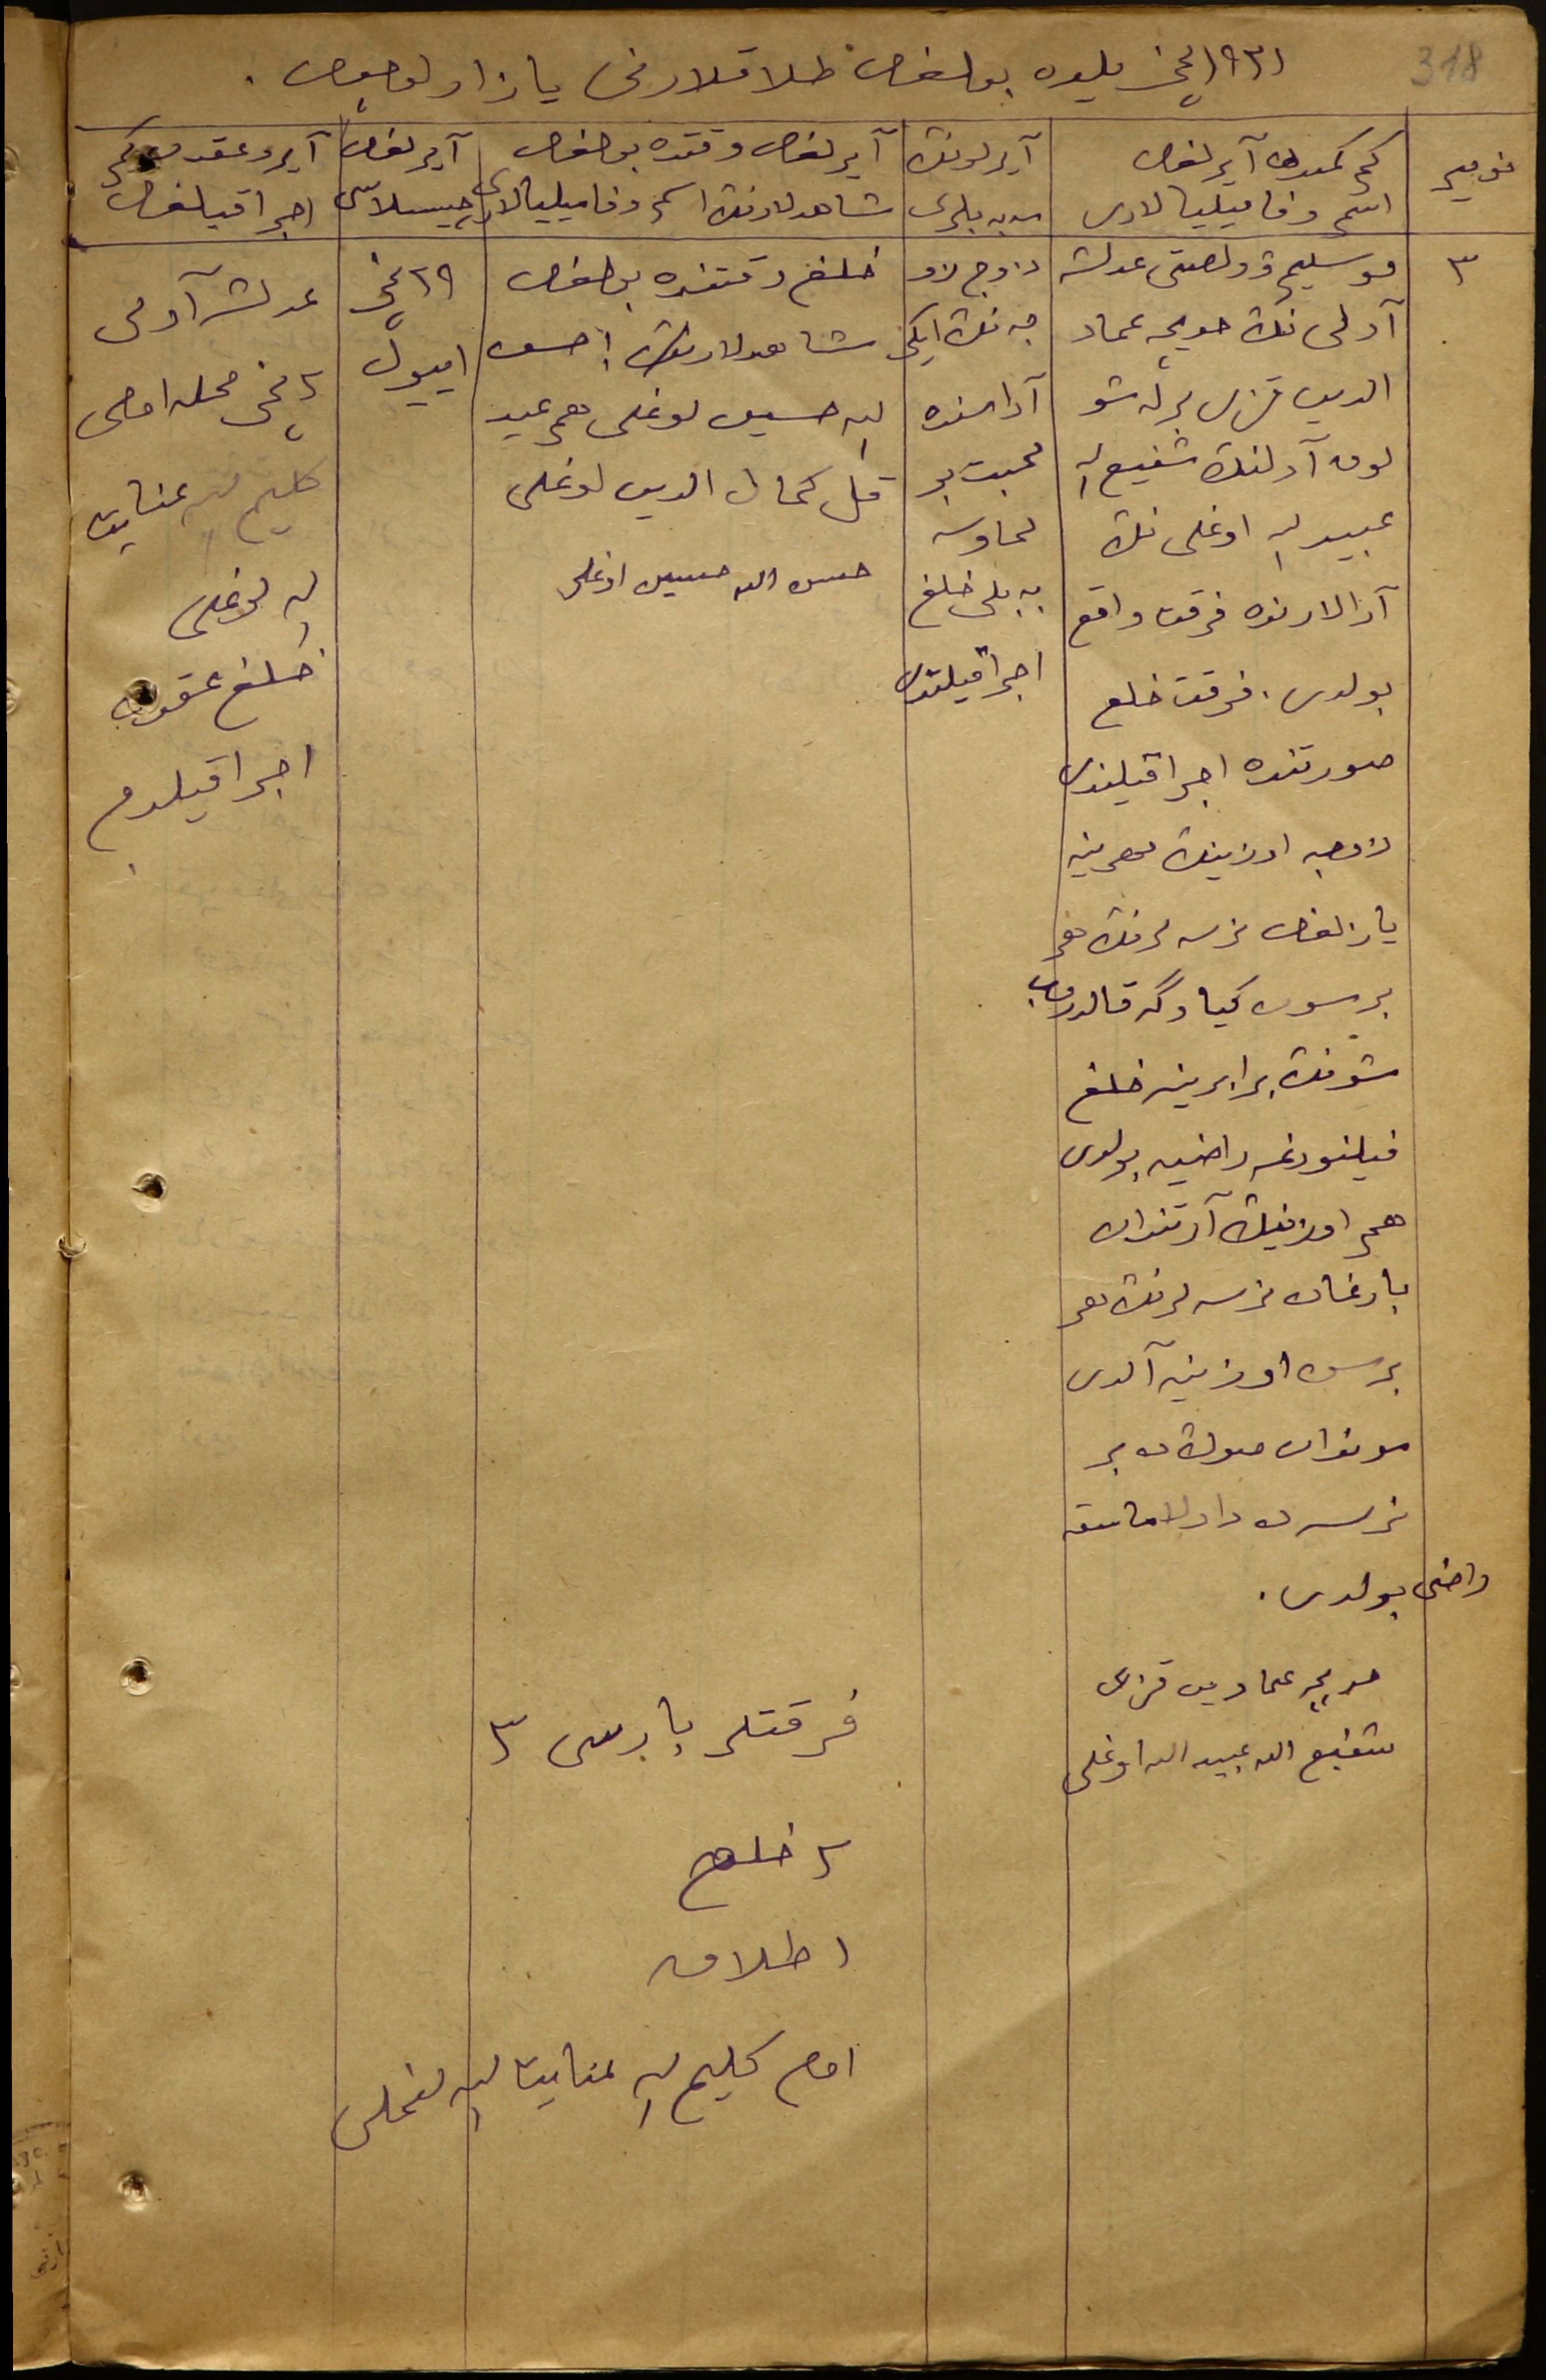 318
١٩٣١ نچی یلده بولغان طلاقلارنی یازا
نومیر
کم کمدن آیرلغان
اسم وفامیلیالاری
آیرلونڭ
سببلری
آیرلغان وقتده بولغان
شاهدلارنڭ اسم وفامیلیالاری
آیرلغان
چیسلاسی
آیرو عقدن کم
اجرا قیلغان
٣
عدلشه
آولی نڭ عماد
الدین قزی برله شو
آولنڭ شفیع الله
عبید الله اوغلی نڭ
آرالارنده فرقت واقع
بولدی. فرقت خلع
صورتنده اجرا قیلندی
زوجه اوزینڭ مهرینه
یازلغان نرسه لرنڭ هم
برسون کیاوگه قالدروب
شونڭ برابرینه خلع
قیلنورغه راضیه بولدی
هم اوزینڭ آرتندان
بارغان نرسه لرنڭ هم
برسن اوزینه آلدی
موندان صوڭ ده بر
نرسه ده داولاماسقه
راضی بولدی.
عمادین قزی
شفیع الله عبید الله اوغلی
زوج زو
جه نڭ ایکی
آراسنده
محبت بر
لماو سه
به بلی خلع
اجرا قیلندی
خلع وقتنده بولغان
شاهدلارنڭ احسن
الله حسین اوغلی هم عبید
کمال الدین اوغلی
حسن الله حسین اوغلی
٢٩ نچی
اییول
عدلشه آولی
٢ نچی محله امامی
کلیم الله عنایت
الله اوغلی
خلع عقدن
اجرا قیلدم
فرقتلر باریسی ٣
٢ خلع
١ طلاق
امام کلیم الله عنایت الله اوغلی